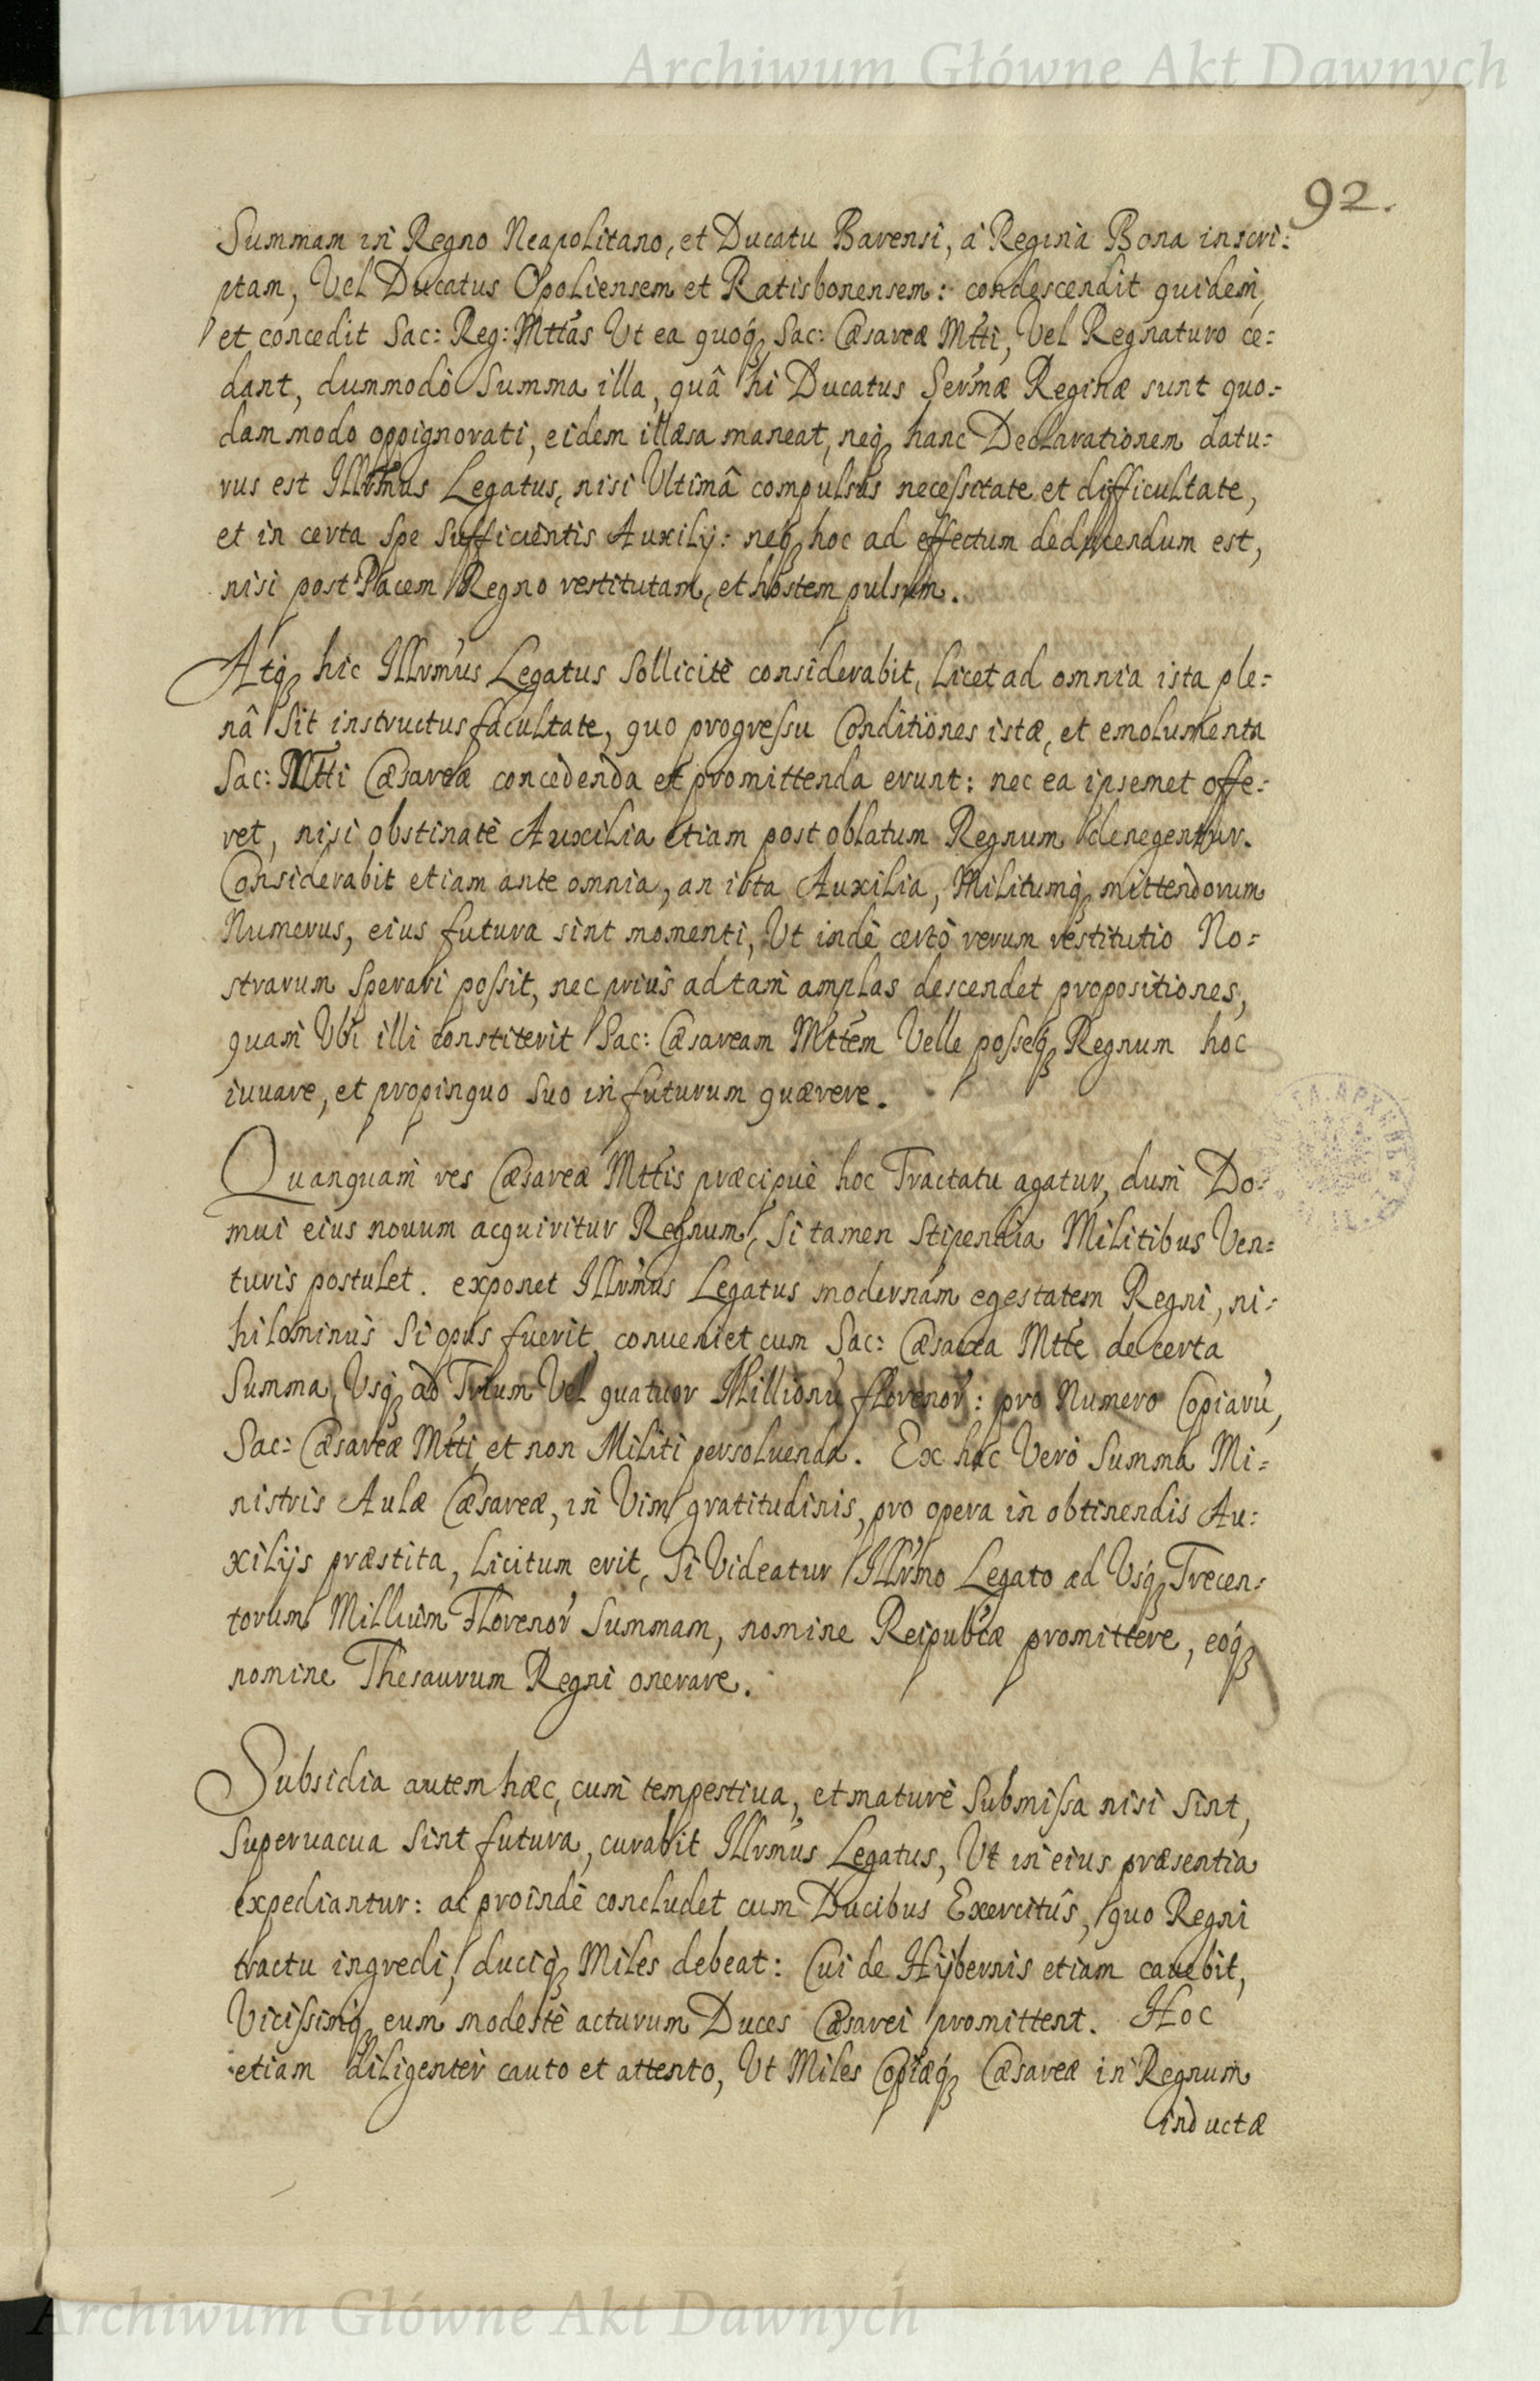 Archiwum Główne Akt Dawnych
92.
Summam in Regno Neapolitano, et Ducatu Barensi, à Regina Bona inscri:
ptam, Vel Ducatus Opoliensem et Ratisbonensem: condescendit quidem,
et concedit Sac: Reg: Mttas Vt ea quoq́ Sac: Cæsareæ Mtti, Vel Regnaturo ce:
dant, dummodò Summa illa, quâ hi Ducatus Sermæ Reginæ sunt quo:
dam modo oppignorati, eidem illæsa maneat, neq́ hanc Declarationem datu:
rus est Illrmus Legatus, nisi Vltimâ compulsus necessitate et difficultate,
et in certa spe Sufficientis Auxilij: neq́ hoc ad effectum deducendum est,
nisi post Pacem Regno restitutam, et hostem pulsum.
Atq́ hic Illrmus Legatus Sollicitè considerabit, Licet ad omnia ista ple:
nâ Sit instructus facultate, quo progressu Conditiones istæ, et emolumenta
Sac: Mtti Cæsareæ concedenda et promittenda erunt: nec ea ipsemet offe:
ret, nisi obstinatè Auxilia etiam post oblatum Regnum denegentur.
Considerabit etiam ante omnia, an ista Auxilia, Militumq́ mittendorum
Numerus, eius futura sint momenti, Vt indè certò rerum restitutio No:
strarum Sperari possit, nec prius ad tam amplas descendet propositiones,
quam Vbi illi constiterit Sac: Cæsaream Mttem Velle posseq́ Regnum hoc
iuuare, et propinquo Suo in futurum quærere.
Quanquam res Cæsareæ Mttis præcipuè hoc Tractatu agatur, dum Do:
mui eius nouum acquiritur Regnum, Si tamen Stipendia Militibus Ven:
turis postulet. exponet Illrmus Legatus modernam egestatem Regni, ni:
hilominus Si opus fuerit, conueniet cum Sac: Cæsarea Mtte de certa
Summa, Vsq́ ad Trium Vel quatuor Millionũ florenor̃: pro Numero Copiarũ,
Sac: Cæsareæ Mtti, et non Militi persoluenda. Ex hac Verò Summa Mi:
nistris Aulæ Cæsareæ, in Vim gratitudinis, pro opera in obtinendis Au:
xilijs præstita, Licitum erit, Si Videatur Illrmo Legato ad Vsq́ Trecen:
torum Millium Florenor̃ Summam, nomine Reipublæ promittere, eoq́
nomine Thesaurum Regni onerare.
Subsidia autem hæc, cum tempestiua, et maturè Submissa nisi Sint,
Superuacua Sint futura, curabit Illrmus Legatus, Vt in eius præsentia
expediantur: ac proindè concludet cum Ducibus Exercitûs, quo Regni
tractu ingredi, duciq́ Miles debeat: Cui de Hÿbernis etiam cauebit,
Vicissimq́ eum modestè acturum Duces Cæsarei promittent. Hoc
etiam diligenter cauto et attento, Vt Miles Copiæq́ Cæsareæ in Regnum
inductæ
Archiwum Główne Akt Dawnych